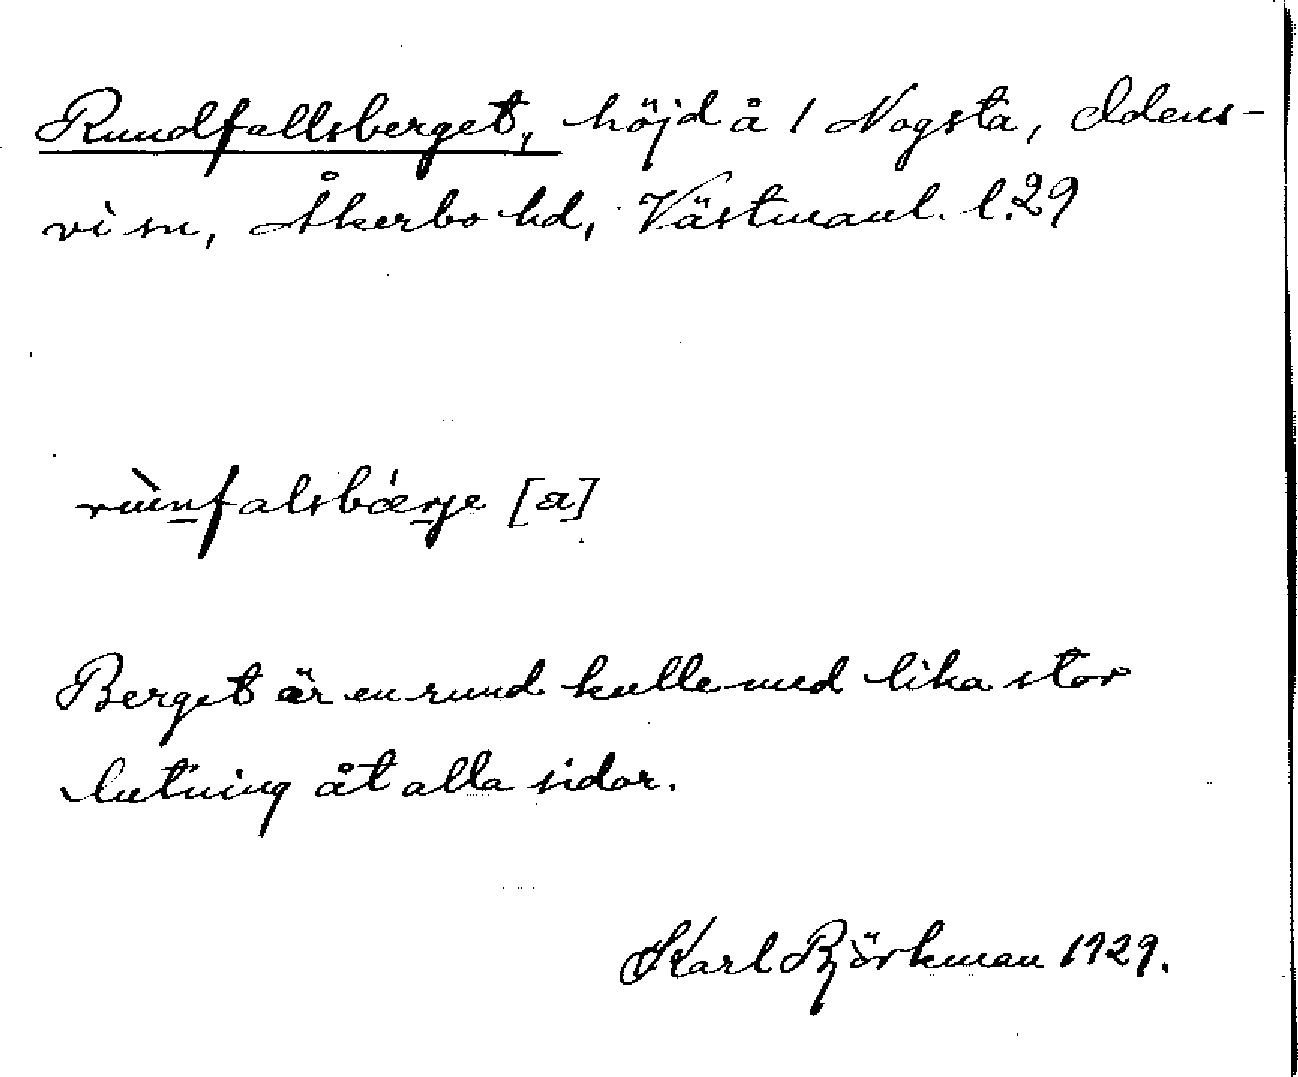 Rundfallsberget, höjd å 1 Nogsta, Odens-
vi sn, Åkerbo hd, Västmanl. l. 29
rùnfalsbǽrje [a]
Berget är en rund kulle med lika stor
lutning åt alla sidor.
Karl Björkman 1929.